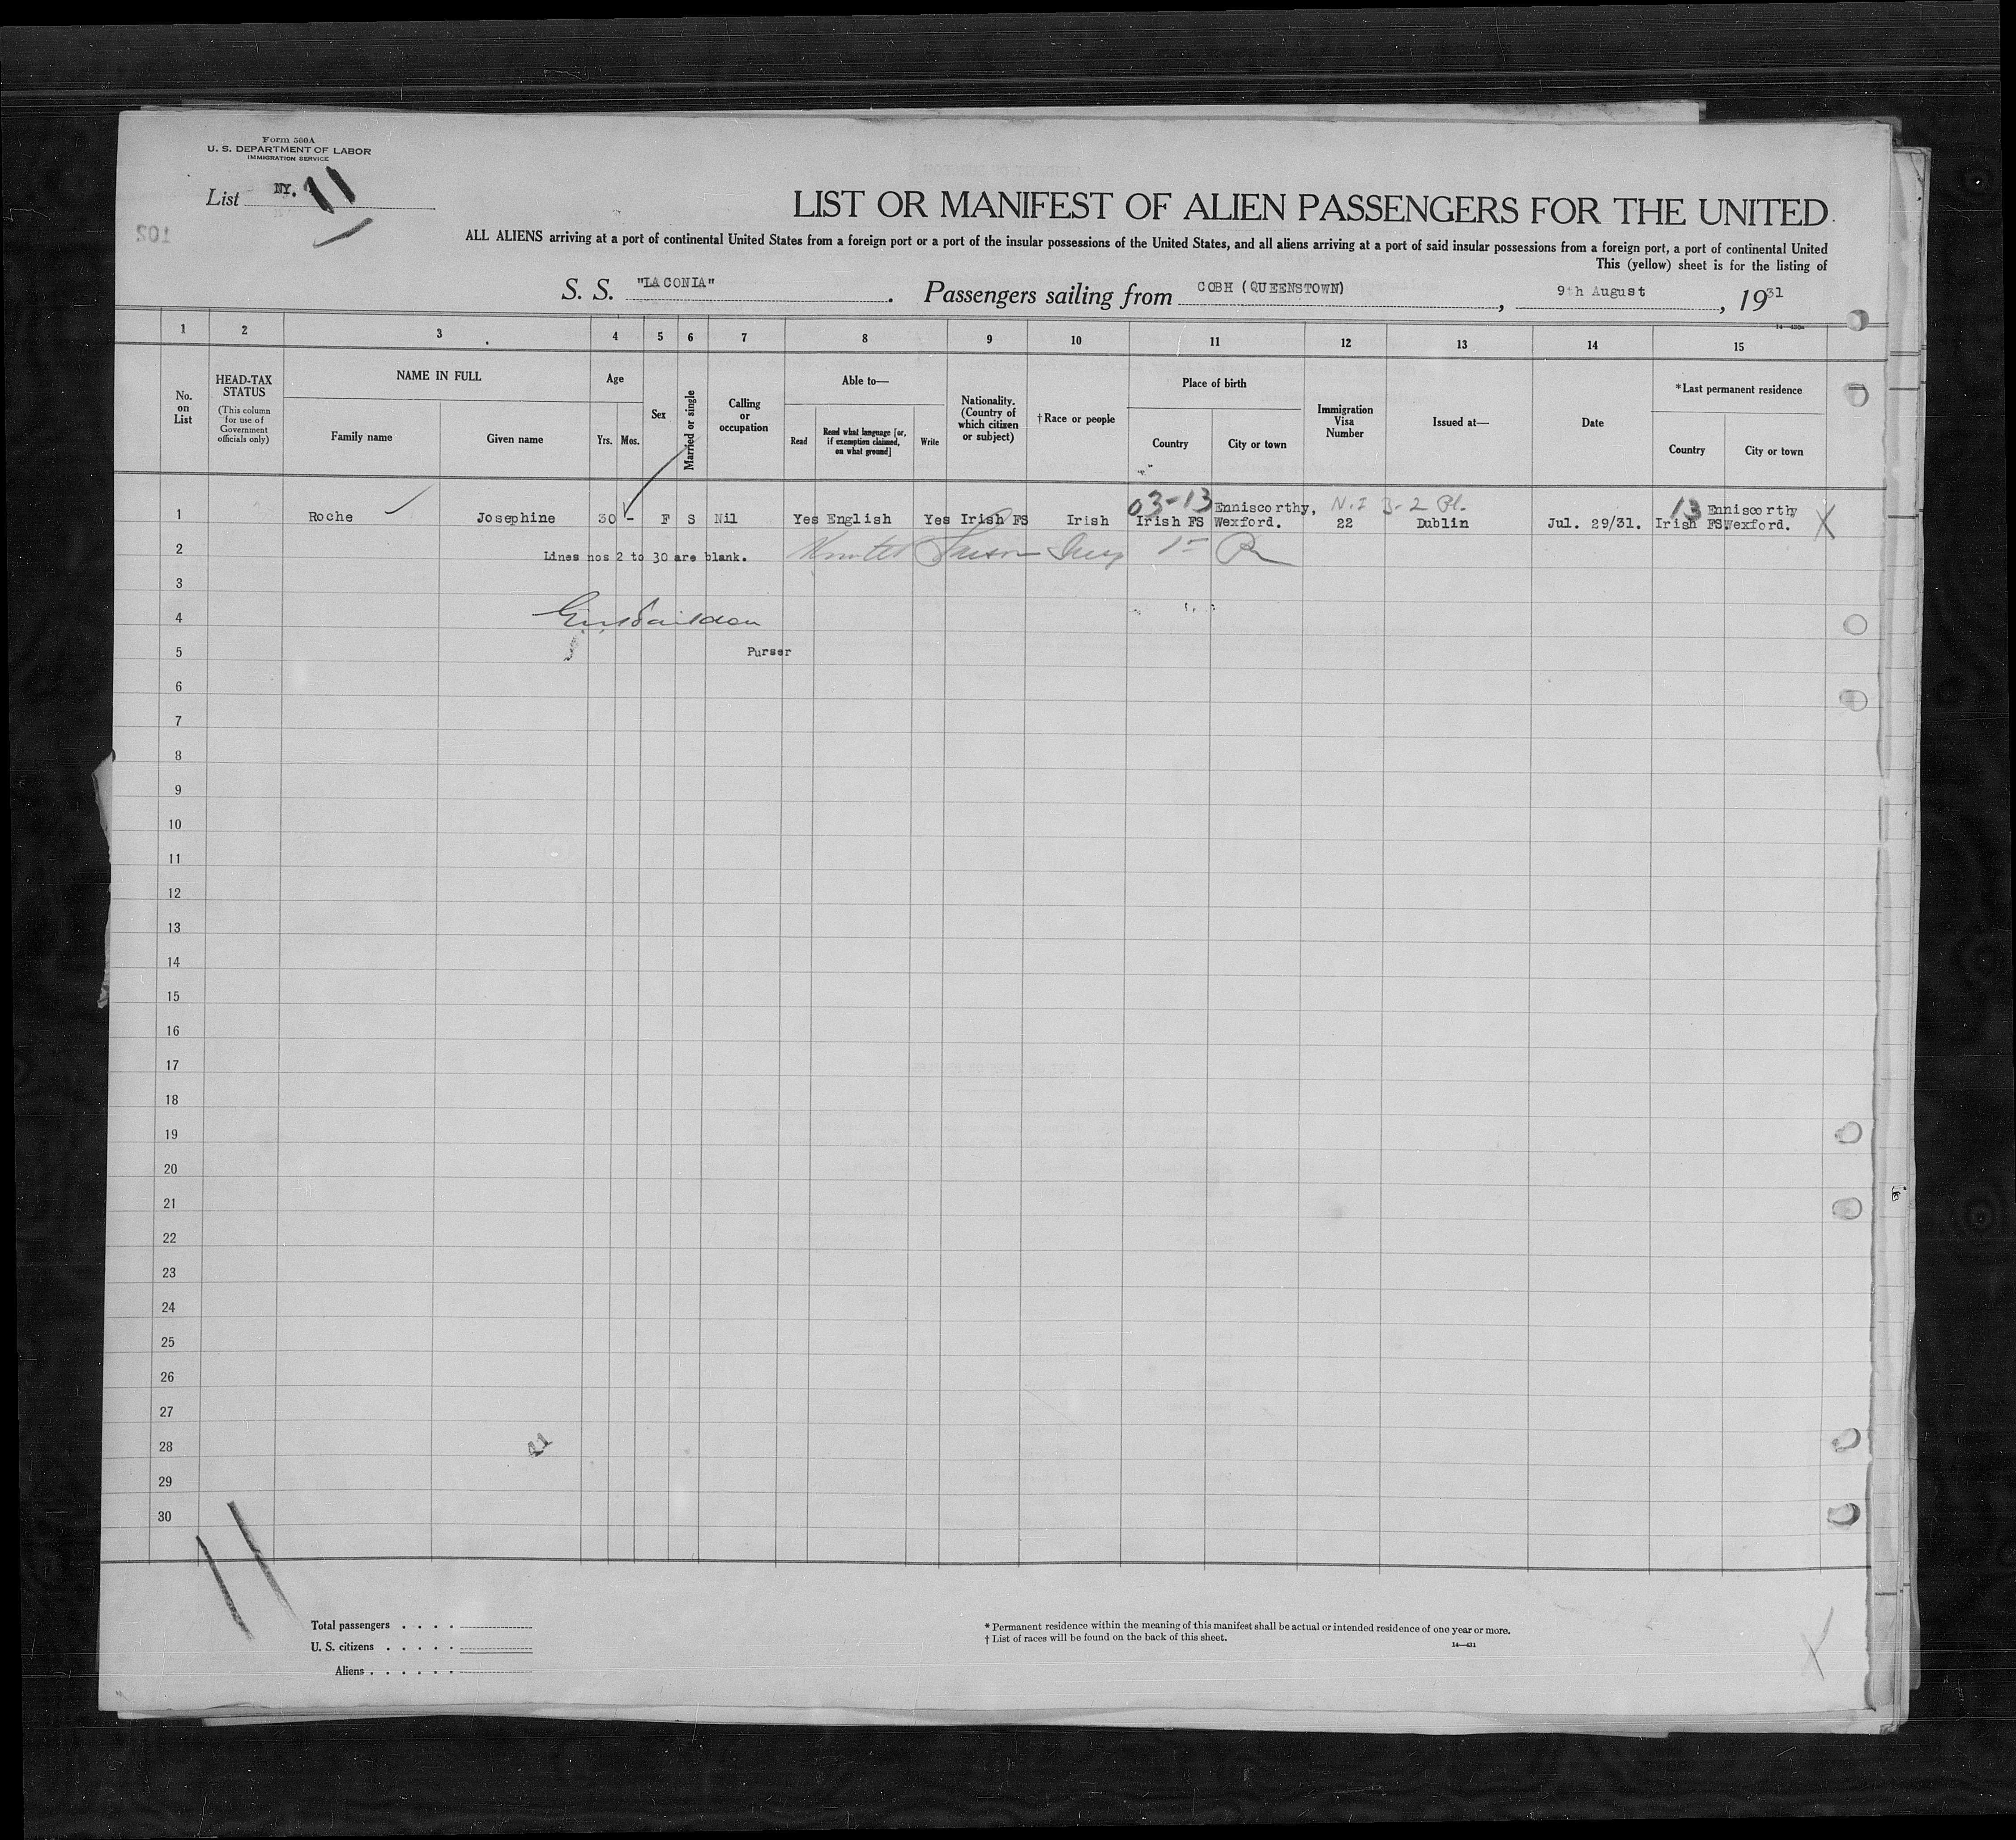 Form 500A
U. S. DEPARTMENT OF LABOR
IMMIGRATION SERVICE
List NY. 11
102
LIST OR MANIFEST OF ALIEN PASSENGERS FOR THE UNITED
ALL ALIENS arriving at a port of continental United States from a foreign port or a port of the insular possessions of the United States, and all aliens arriving at a port of said insular possessions from a foreign port, a port of continental United
This (yellow) sheet is for the listing of
S. S. "LACONIA". Passengers sailing from COBH (QUEENSTOWN), 9th August, 1931
1 2 3 4 5 6 7 8 9 10 11 12 13 14 15
No. on List
HEAD-TAX STATUS
(This column for use of Government officials only)
NAME IN FULL
Family name
Given name
Age
Yrs.
Mos.
Sex
Married or single
Calling or occupation
Able to—
Read
Read what language [or, if exemption claimed, on what ground]
Write
Nationality. (Country of which citizen or subject)
† Race or people
Place of birth
Country
City or town
Immigration Visa Number
Issued at—
Date
*Last permanent residence
Country
City or town
03-13 Enniscorthy, N.I 3-2 Pl. 13 Enniscorthy
1 Roche Josephine 30 - F S Nil Yes English Yes Irish FS Irish Irish FS Wexford. 22 Dublin Jul. 29/31. Irish FS Wexford. X
2 Lines nos 2 to 30 are blank.
3
4
5 Purser
6
7
8
9
10
11
12
13
14
15
16
17
18
19
20
21
22
23
24
25
26
27
28
29
30
11
Total passengers . . . .
U. S. citizens . . . . .
Aliens . . . . . .
* Permanent residence within the meaning of this manifest shall be actual or intended residence of one year or more.
† List of races will be found on the back of this sheet.
14—431